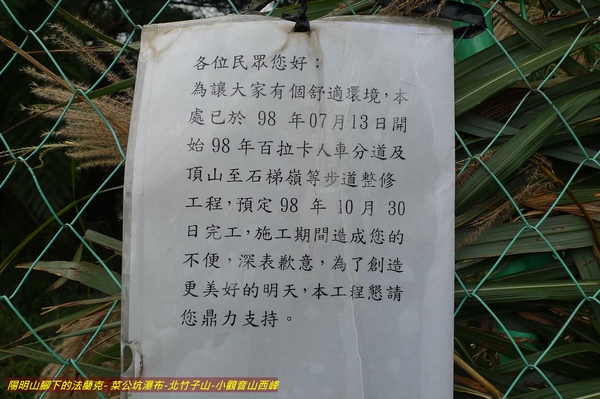 各位民眾您好：
為讓大家有個舒適環境，本
處已於 98 年07月13日開
始98年百拉卡人車分道及
頂山至石梯嶺等步道整修
工程，預定98 年 10月 30
日完工，施工期間造成您的
不便，深表歉意，為了創造
更美好的明天，本工捏懇請
您鼎力支持。
陽明山腳下的法蘭克- 菜公坑瀑布-北竹子山-小觀音山西峰